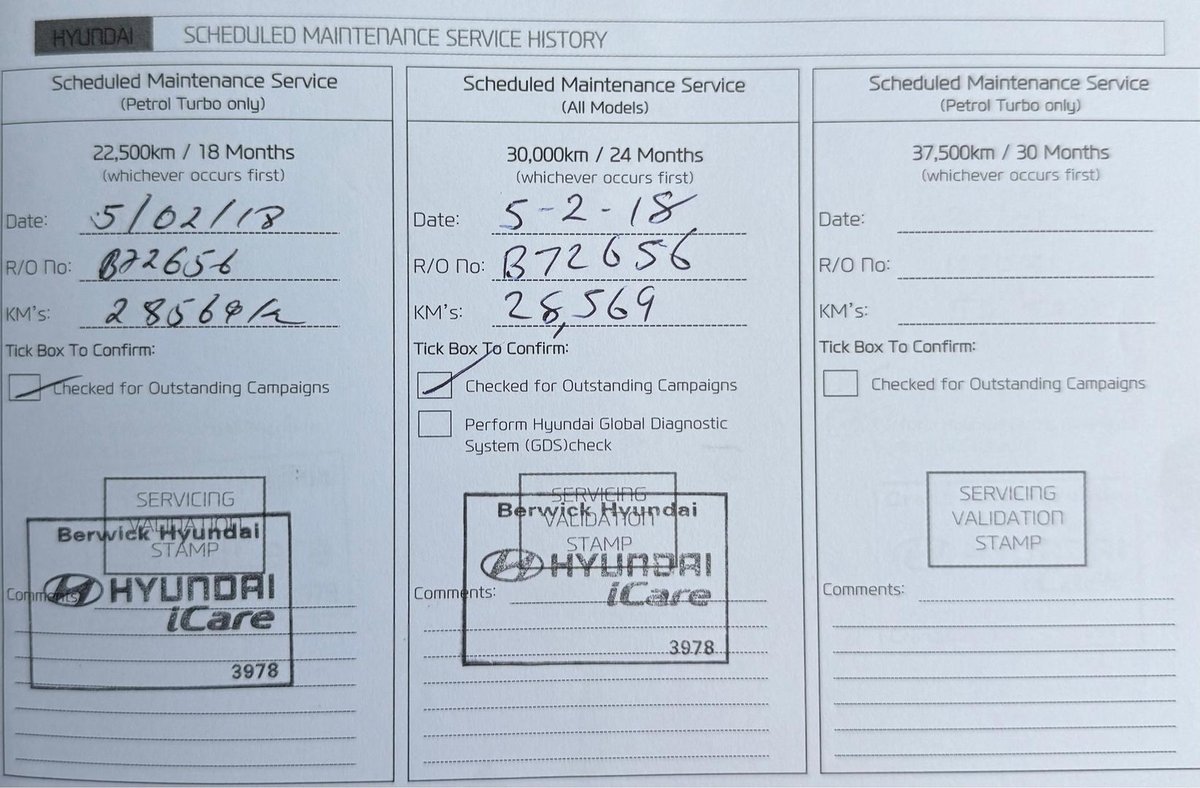 HYUNDAI SCHEDULED MAINTENANCE SERVICE HISTORY
Scheduled Maintenance Service
(Petrol Turbo only)
22,500km / 18 Months
(whichever occurs first)
Date: 5/02/18
R/O No: B72656
KM's: 28569k
Tick Box To Confirm:
Checked for Outstanding Campaigns
SERVICING
VALIDATION
STAMP
Berwick Hyundai
HYUNDAI
iCare
3978
Comments:
Scheduled Maintenance Service
(All Models)
30,000km / 24 Months
(whichever occurs first)
Date: 5-2-18
R/O No: B72656
KM's: 28,569
Tick Box To Confirm:
Checked for Outstanding Campaigns
Perform Hyundai Global Diagnostic
System (GDS)check
SERVICING
VALIDATION
STAMP
Berwick Hyundai
HYUNDAI
iCare
3978
Comments:
Scheduled Maintenance Service
(Petrol Turbo only)
37,500km / 30 Months
(whichever occurs first)
Date:
R/O No:
KM's:
Tick Box To Confirm:
Checked for Outstanding Campaigns
SERVICING
VALIDATION
STAMP
Comments: